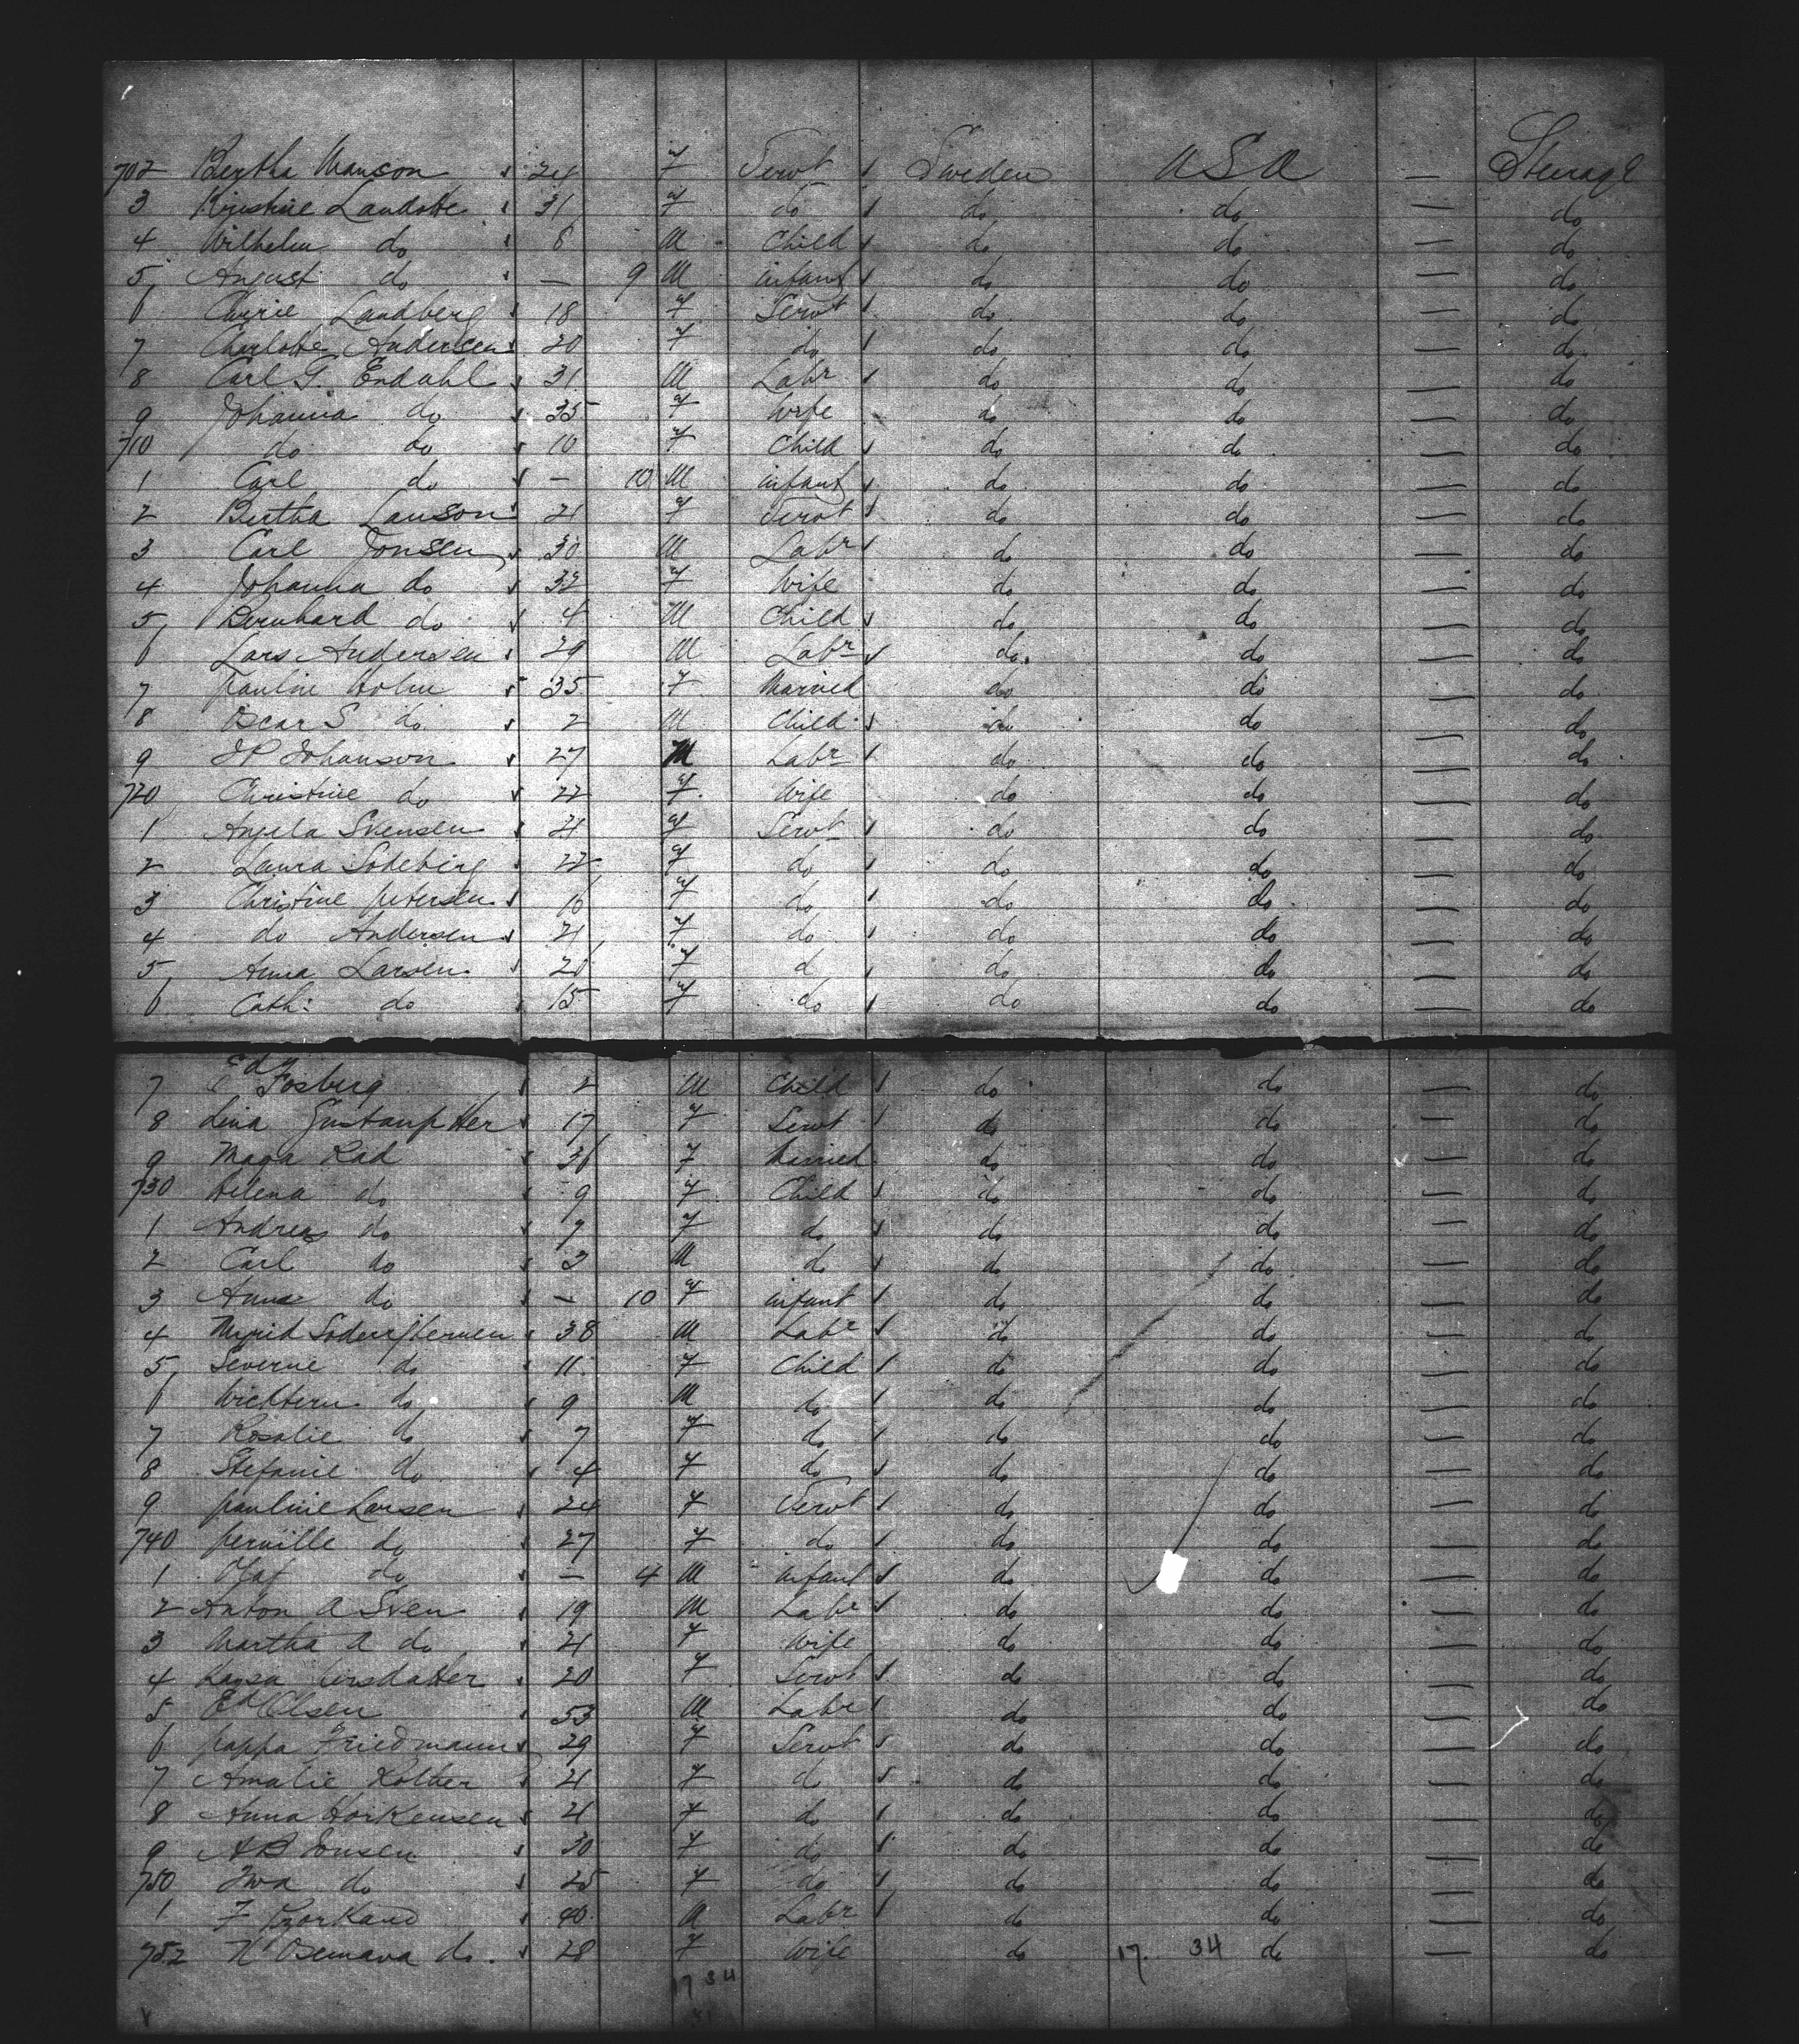 702 Bertha Manson 24 f Servt Sweden USA — Steerage
3 Kristine Landotte 31 f do do do — do
4 Wilhelm do 6 M Child do do — do
5 August do — 9 M infant do do — do
6 Landberg 18 f Servt do do — do
7 Charlotte Andersen 20 f do do do — do
8 Carl G. Endahl 31 M Labr do do — do
9 Johanna do 35 f Wife do do — do
710 do do 10 f Child do do — do
1 Carl do — 10 M infant do do — do
2 Bertha Lanson 21 f Servt do do — do
3 Carl Jonsen 30 M Labr do do — do
4 Johanna do 32 f Wife do do — do
5 Bernhard do 4 M Child do do — do
6 Lars Andersen 29 M Labr do do — do
7 Pauline Holm 35 f Married do do — do
8 Oscar S do 2 M Child do do — do
9 JP Johanson 27 M Labr do do — do
720 Christine do 22 f Wife do do — do
1 Angela Svensen 21 f Servt do do — do
2 Laura Sodeberg 22 f do do do — do
3 Christine Petersen 16 f do do do — do
4 do Andersen 21 f do do do — do
5 Anna Larsen 20 f d do do — do
6 Cath: do 15 f do do do — do
7 Ed Fosberg 2 M Child do do — do
8 Lina Gustanptter 17 f Servt do do — do
9 Maga Rad 31 f Married do do — do
730 Helena do 9 f Child do do — do
1 Andreas do 7 f do do do — do
2 Carl do 3 M do do do — do
3 Anna do — 10 f infant do do — do
4 38 M Labr do do — do
5 Severne do 11 f Child do do — do
6 do 9 M do do do — do
7 Rosalie do 7 f do do do — do
8 Stefanie do 4 f do do do — do
9 Pauline Larsen 24 f Servt do do — do
740 Pernille do 27 f do do do — do
1 Olaf do — 4 M infant do do — do
2 Anton A Sven 19 M Labr do do — do
3 Martha A do 21 f Wife do do — do
4 Kaysa Persdatter 20 f Servt do do — do
5 Ed Olsen 53 M Labr do do — do
6 Pappa Friedmann 29 f Servt do do — do
7 Amalie Rother 21 f do do do — do
8 Anna Horkensen 21 f do do do — do
9 AB Jonsen 30 f do do do — do
750 Iwa do 25 f do do do — do
1 F 40 M Labr do do — do
752 N Osemava do 28 f Wife do 17. 34 do — do
17 34